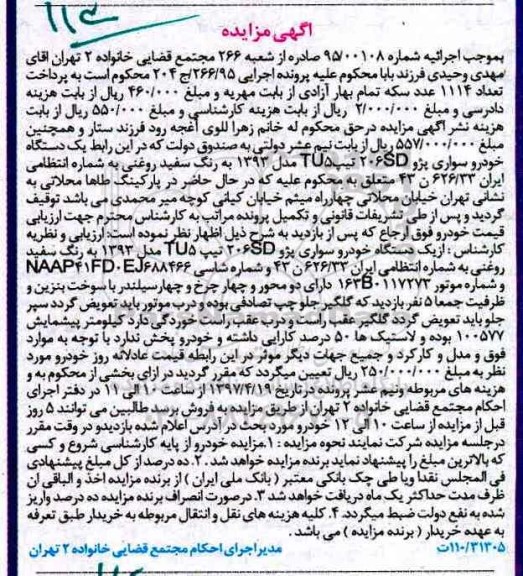 آگهی مزایده
بموجب اجرائیه شماره 95/00108 صادره از شعبه 266 مجتمع قضایی خانواده 2 تهران آقای
مهدی وحیدی فرزند بابا محکوم علیه پرونده اجرایی 266/95/ج 204 محکوم است به پرداخت
تعداد 1114 عدد سکه تمام بهار آزادی از بابت مهریه و مبلغ 460/000 ریال از بابت هزینه
دادرسی و مبلغ 2/000/000 ریال از بابت هزینه کارشناسی و مبلغ 550/000 ریال از بابت
هزینه نشر آگهی مزایده درحق محکوم له خانم زهرا للوی آغجه رود فرزند ستار و همچنین
مبلغ 557/000/000 ریال از بابت نیم عشر دولتی به صندوق دولت که در این رابط یک دستگاه
خودرو سواری پژو 206SD تیپ TU5 مدل 1393 به رنگ سفید روغنی به شماره انتظامی
ایران 626/33 ن 43 متعلق به محکوم علیه که در حال حاضر در پارکینگ طاها محلاتی به
نشانی تهران خیابان محلاتی چهارراه میثم خیابان کیانی کوچه میر محمدی می باشد توقیف
گردید و پس از طی تشریفات قانونی و تکمیل پرونده مراتب به کارشناس محترم جهت ارزیابی
قیمت خودرو فوق ارجاع که پس از بازدید به شرح ذیل اظهار نظر نموده است: ارزیابی و نظریه
کارشناس : ازیک دستگاه خودرو سواری پژو 206SD تیپ TU5 مدل 1393 به رنگ سفید
روغنی به شماره انتظامی ایران 626/33 ن 43 و شماره شاسی NAAP41FD0EJ688466
و شماره موتور 163B0117273 دارای دو محور و چهار چرخ و چهارسیلندر با سوخت بنزین و
ظرفیت جمعا 5 نفر بازدید که گلگیر جلو چپ تصادفی بوده و درب موتور باید تعویض گردد سپر
جلو باید تعویض گردد گلگیر عقب راست و درب عقب راست خوردگی دارد کیلومتر پیشمایش
100577 بوده و لاستیک ها 50 درصد کارایی داشته و خودرو پخش ندارد با توجه به موارد
فوق و مدل و کارکرد و جمیع جهات دیگر موثر در این رابطه قیمت عادلانه روز خودرو مورد
نظر به مبلغ 250/000/000 ریال تعیین میگردد که مقرر گردید در ازای بخشی از محکوم به و
هزینه های مربوطه ونیم عشر پرونده درتاریخ 1397/4/19 از ساعت 10 الی 11 در دفتر اجرای
احکام مجتمع قضایی خانواده 2 تهران از طریق مزایده به فروش برسد طالبین می توانند 5 روز
قبل از مزایده از ساعت 10 الی 12 خودرو مورد بحث در آدرس اعلام شده بازدیدو در وقت مقرر
درجلسه مزایده شرکت نمایند نحوه مزایده : 1.مزایده خودرو از پایه کارشناسی شروع و کسی
که بالاترین مبلغ را پیشنهاد نماید برنده مزایده خواهد شد .2. ده درصد از کل مبلغ پیشنهادی
فی المجلس نقدا ویا طی چک بانکی معتبر ( بانک ملی ایران ) از برنده مزایده اخذ و الباقی ان
ظرف مدت حداکثر یک ماه دریافت خواهد شد 3. درصورت انصراف برنده مزایده ده درصد واریز
شده به نفع دولت ضبط میگردد. 4. کلیه هزینه های نقل و انتقال مربوطه به خریدار طبق تعرفه
به عهده خریدار ( برنده مزایده ) می باشد .
110/31305ت مدیر اجرای احکام مجتمع قضایی خانواده 2 تهران